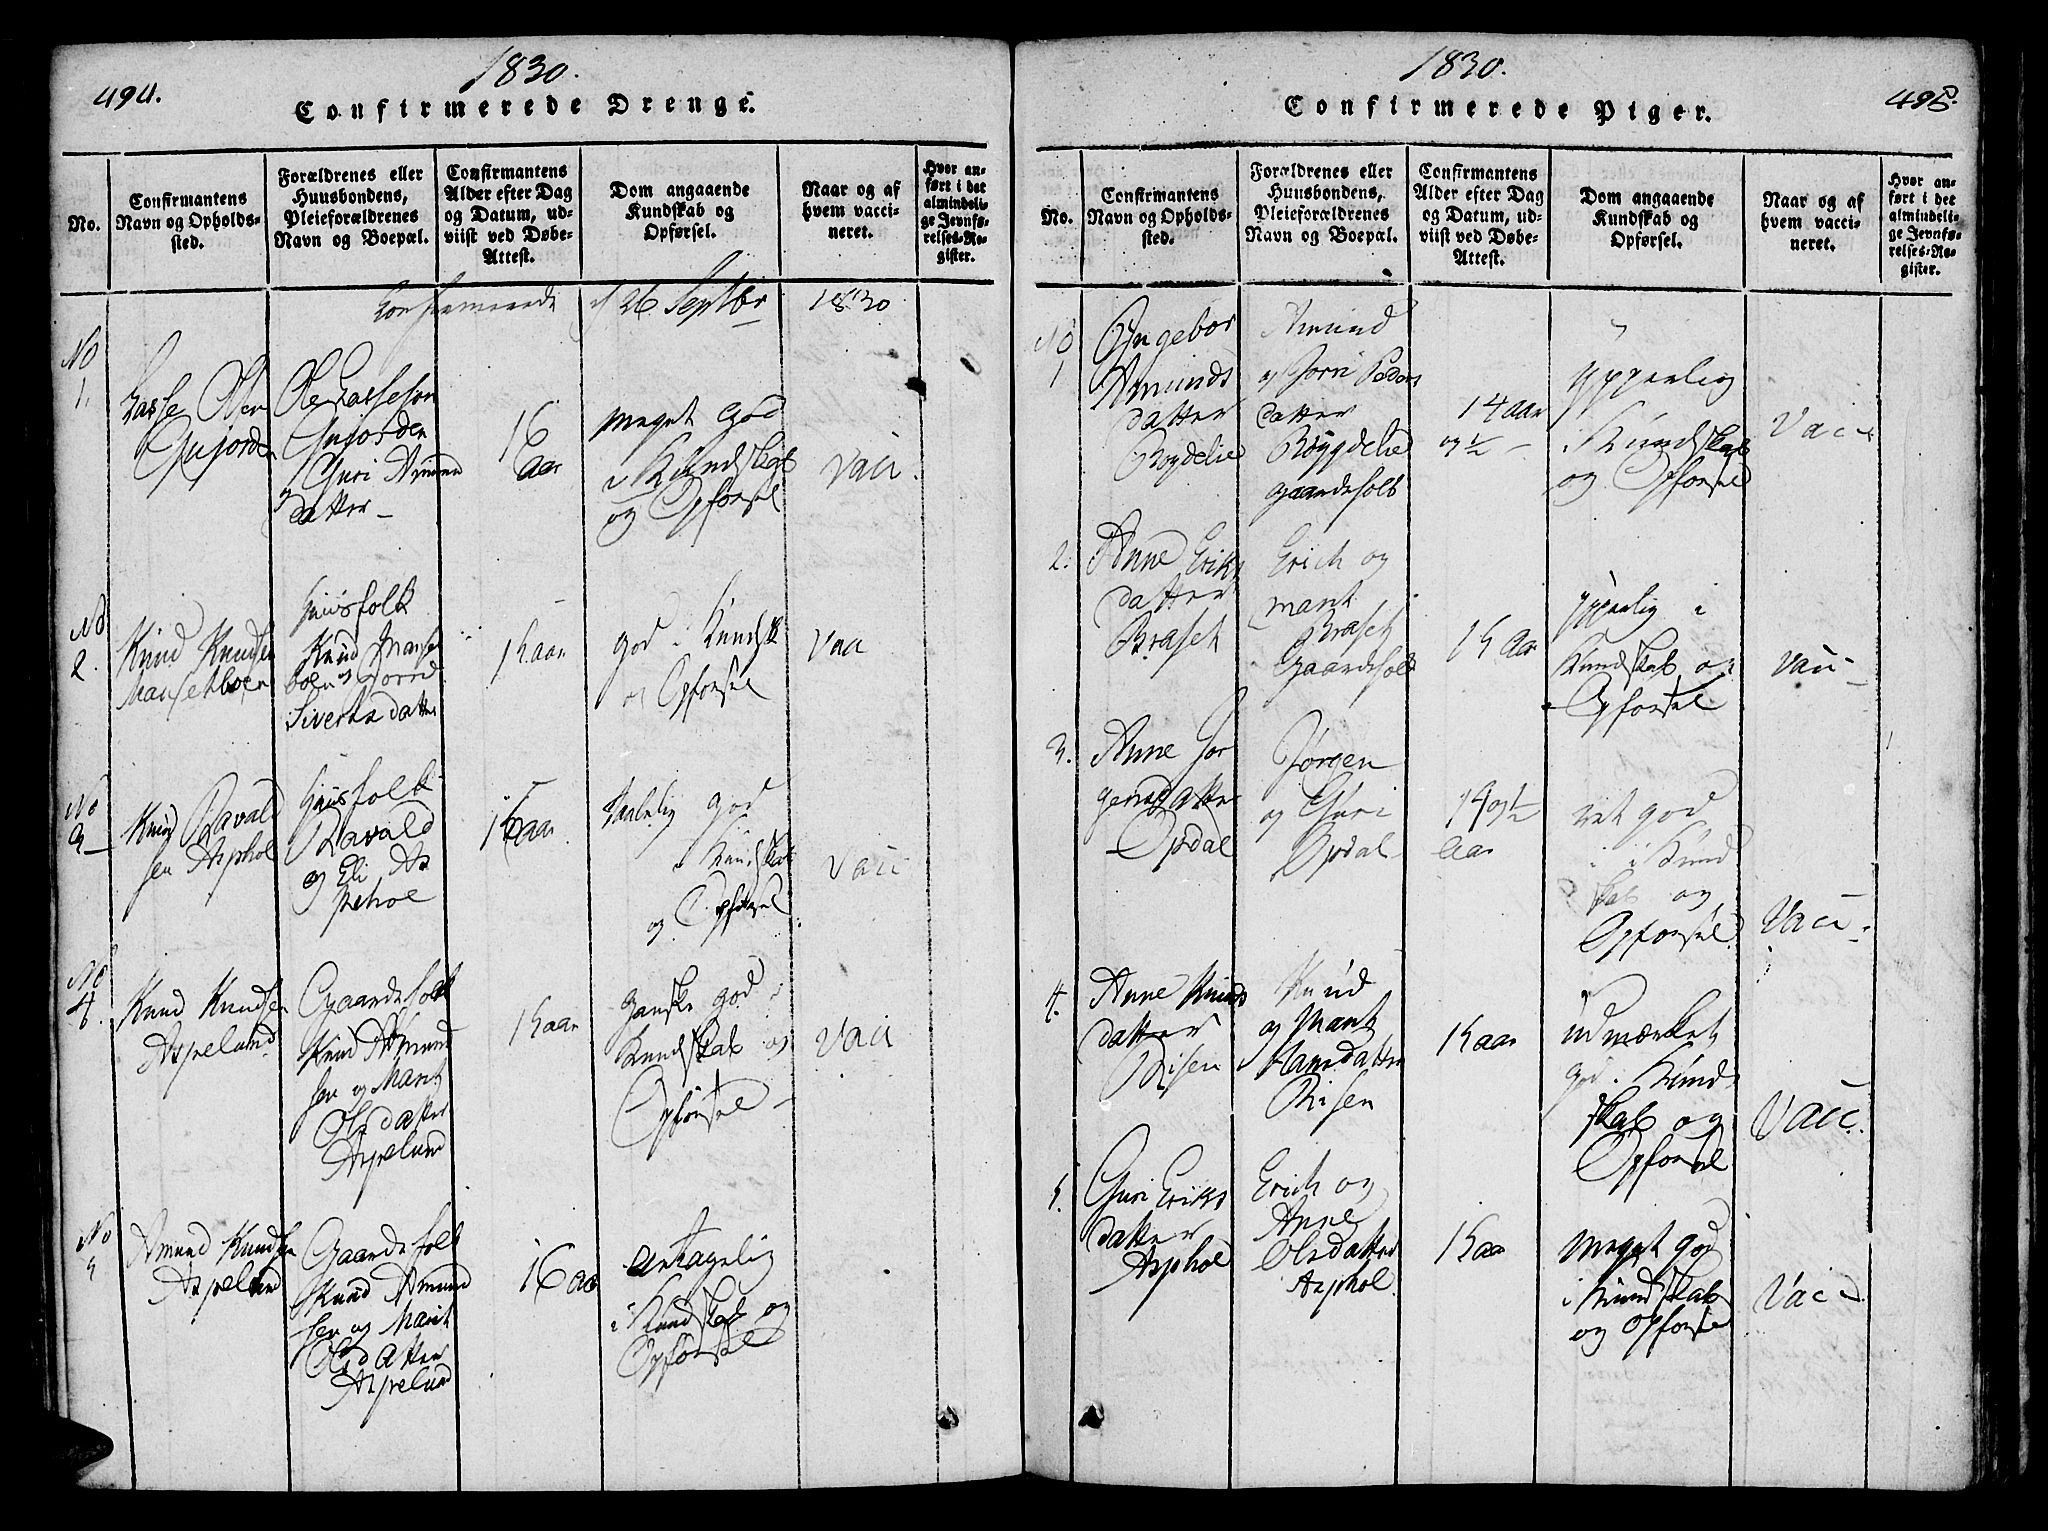 494.
1830.
Confirmerede Drenge.
No.
Confirmantens
Navn og Opholds-
sted.
Forældrenes eller
Huusbondens,
Pleieforældrenes
Navn og Boepæl.
Confirmantens
Alder efter Dag
og Datum, ud-
viist ved Døbe-
Attest.
Dom angaaende
Kundskab og
Opførsel.
Naar og af
hvem vacci-
neret.
Hvor an-
ført i det
almindeli-
ge Jevnfø-
relses-Re-
gister.
Confirmerede d 26 Septbr 1830
No
1.
Lasse Olsen
Gujorden
Ole Lassesøn
Gujorden
og Guri Amund
datter
16
aar
meget God
i Kundskab
og Opførsel
Vacc.
No
2.
Knud Knudsen
Mansetboen
Huusfolk
Knud Manset
boen og Torrid
Siverts datter
15 aar
god i Kundsk
og Opførsel
Vacc
No
3
Knud Ravald
sen Asphol
Huusfolk
Ravald
og Eli As
pehol
15 aar
Taalelig god
i Kundskab
og Opførsel
Vacc
No
4.
Knud Knudsen
Aspelund
Gaardsfolk
Knud Amund
sen og Marit
Olsdatter
Aspelund
15 aar
ganske god i
Kundskab og
Opførsel
Vacc
No
5
Amund Knudsen
Aspelund
Gaardsfolk
Knud Amund
sen og Marit
Olsdatter
Aspelund
16 aar
antagelig
i Kundskab og
Opførsel
1830.
495.
Confirmerede Piger.
No.
Confirmantens
Navn og Opholds-
sted.
Forældrenes eller
Huusbondens,
Pleieforældrenes
Navn og Boepæl.
Confirmantens
Alder efter Dag
og Datum, ud-
viist ved Døbe-
Attest.
Dom angaaende
Kundskab og
Opførsel.
Naar og af
hvem vacci-
neret.
Hvor an-
ført i det
almindeli-
ge Jevnfø-
relses-Re-
gister.
No
1
Ingebor
Amunds
datter
Bøgdelie
Amund
og Jorri Peders
datter
Bøygdelie
Gaardsfolk
14 aar
og ½
ypperlig
i Kundskab
og Opførsel
Vacc
2.
Anne Eriks
datter
Braset
Erich og
Marit
Braset
Gaardsfolk
15 aar
ypperlig i
Kundskab og
Opførsel
Vacc
3.
Anne Jør
gensdatter
Opdal
Jørgen
og Guri
Opdal
14 og ½
aar
ret god
i Kund
skab og
Opførsel
Vacc
4.
Anne Knuds
datter
Risen
Knud
og Marit
Hansdatter
Risen
15 aar
udmærket
god i Kund
skab og
Opførsel
Vacc.
5.
Guri Eriks
datter
Asphol
Erich og
Anne
Olsdatter
Asphol
15 aar
meget god
i Kundskab
og Opførsel
Vacc